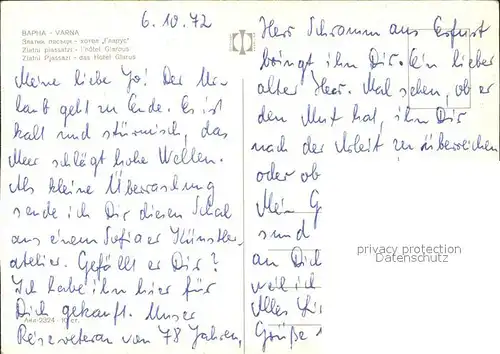 6.10.72
ВАРНА - VARNA
Златни пясъци - хотел „Гларус"
Zlatni piassatzi - l'hôtel Glarous
Zlatni Pjassazi - das Hotel Glarus
Meine liebe Yo! Der Ur-
laub geht zu Ende. Es ist
kalt und stürmisch, das
Meer schlägt hohe Wellen.
Als kleine Überraschung
sende ich Dir diesen Schal
aus einem Sofiaer Künstler-
atelier. Gefällt er Dir?
Ich habe ihn hier für
Dich gekauft. Unser
Reiseveteran von 78 Jahren,
Herr Schramm aus Erfurt
bringt ihn Dir. Ein lieber
alter Herr. Mal sehen, ob er
den Mut hat, ihn Dir
nach der Arbeit zu überreichen
oder ob
Mein G
sind
an Dich
weil ich
Alles Li
Grüße
privacy protection
Datenschutz